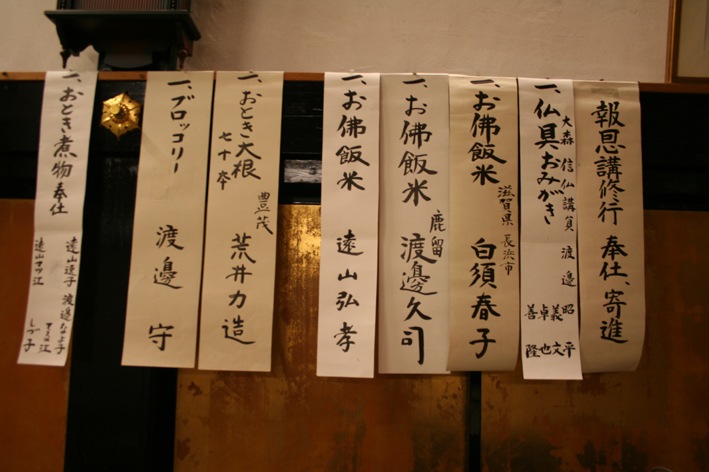 報恩講修行 奉仕、寄進
一、仏具おみがき
大森 信仏講員 渡邉 昭平
義文
卓也
善隆
一、お佛飯米 滋賀県 長浜市 白須春子
一、お佛飯米 鹿留 渡邊久司
一、お佛飯米 遠山弘孝
一、おとき大根 七十本 豊茂 荒井力造
一、ブロッコリー 渡邊 守
一、おとき煮物奉仕
遠山マツ江 しづ子